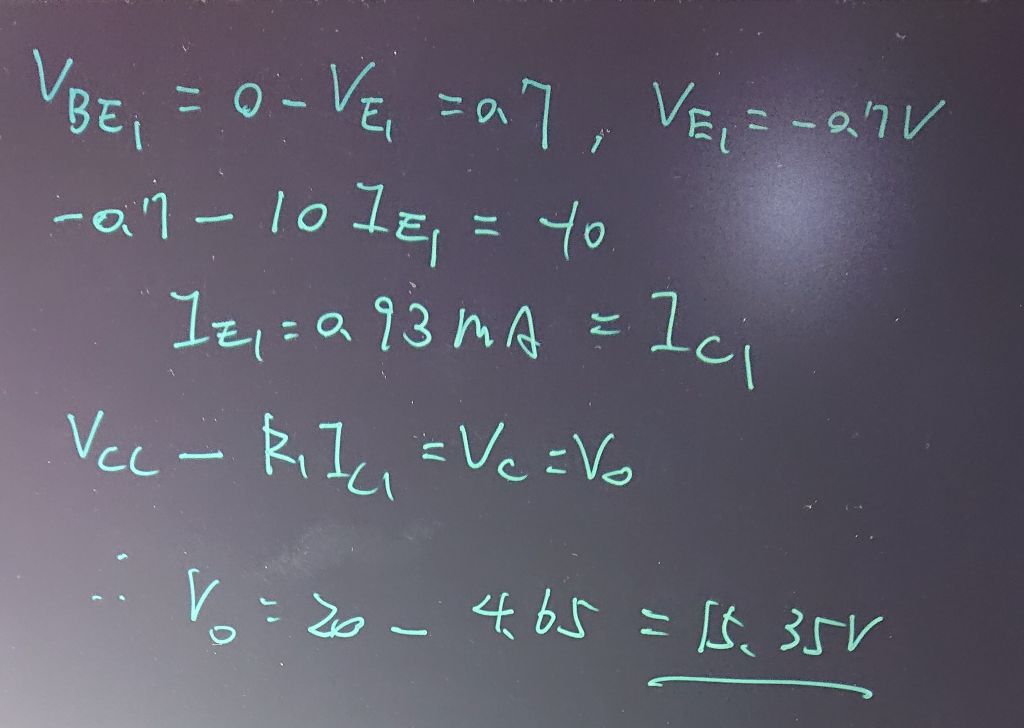 V_BE₁ = 0 - V_E₁ = 0.7, V_E₁ = -0.7V
-0.7 - 10 I_E₁ = -10
I_E₁ = 0.93mA = I_C₁
V_CC - R₁I_C₁ = V_C = V_o
∴ V_o = 20 - 4.65 = 15.35V